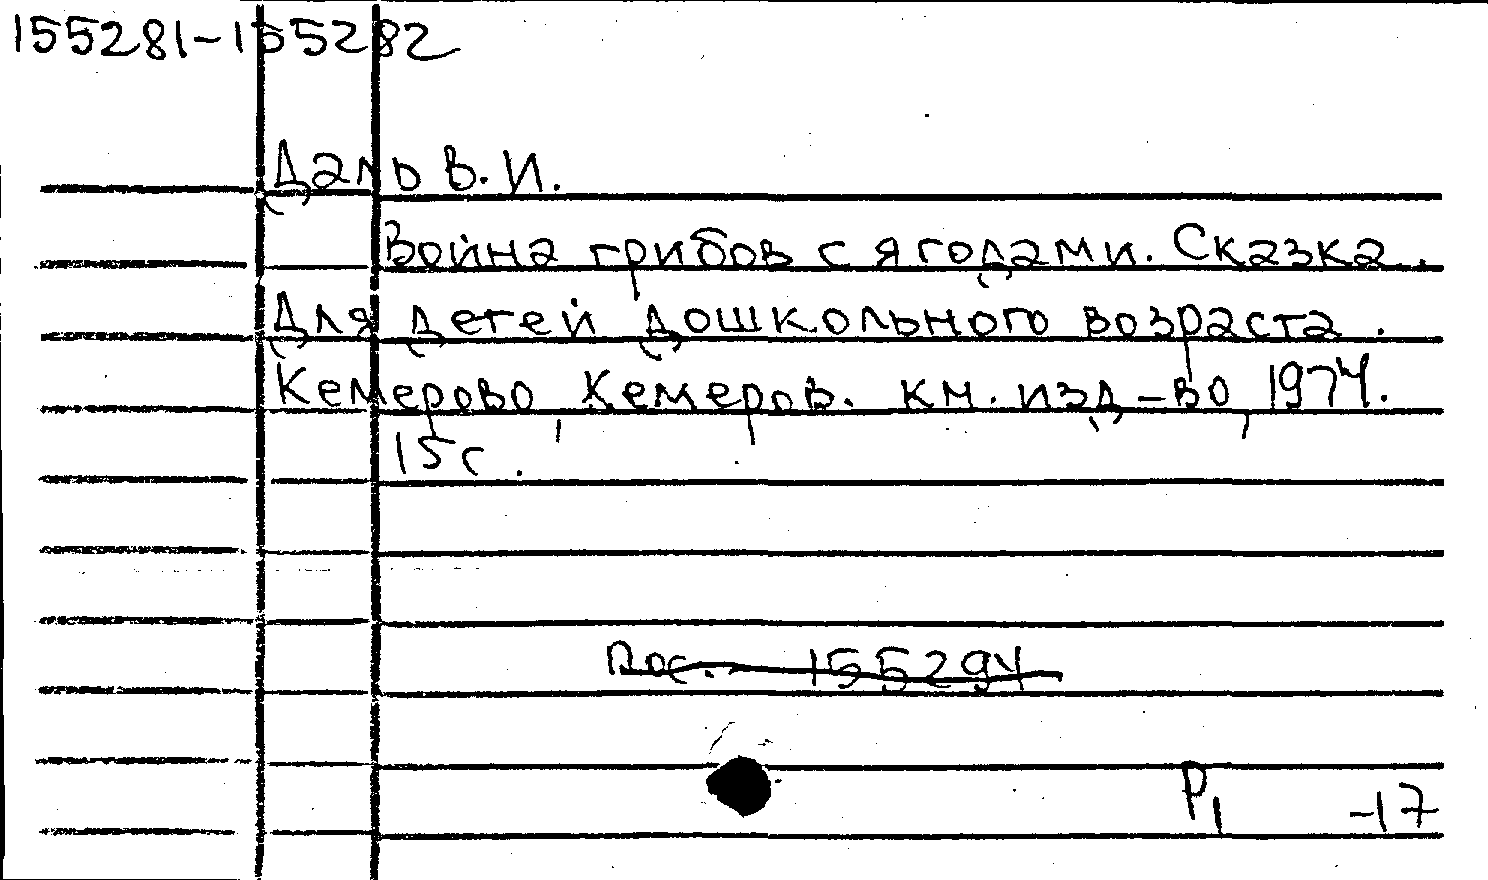 155281-155282
Даль В. И.
Война грибов с ягодами. Сказка.
Для детей дошкольного возраста.
Кемерово, Кемеров. кн. изд-во, 1974.
15 с.
Рос. 155294
Р1 -17